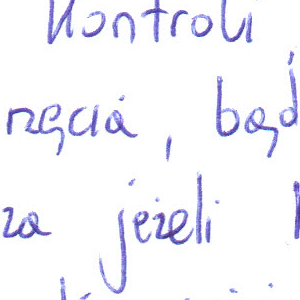 Kontroli
rzęcia, bąd
za jeżeli